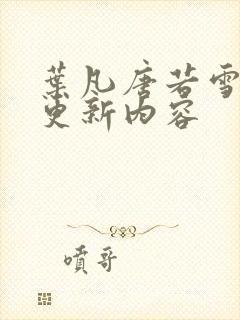 葉凡唐若雪
更新内容
噴哥